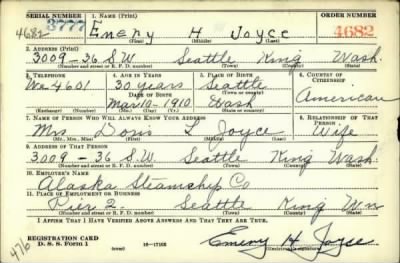 SERIAL NUMBER 1. NAME (Print) ORDER NUMBER
3777 4682 Emery H Joyce 4682
(First) (Middle) (Last)
2. ADDRESS (Print)
3009-36 S.W. Seattle King Wash.
(Number and street or R. F. D. number) (Town) (County) (State)
3. TELEPHONE 4. AGE IN YEARS 5. PLACE OF BIRTH 6. COUNTRY OF CITIZENSHIP
We 4601 30 years Seattle
DATE OF BIRTH (Town or county)
Mar 10-1910 Wash American
(Exchange) (Number) (Mo.) (Day) (Yr.) (State or country)
7. NAME OF PERSON WHO WILL ALWAYS KNOW YOUR ADDRESS 8. RELATIONSHIP OF THAT PERSON
Mrs Doris L Joyce Wife
(Mr., Mrs., Miss) (First) (Middle) (Last)
9. ADDRESS OF THAT PERSON
3009-36 S.W. Seattle King Wash.
(Number and street or R. F. D. number) (Town) (County) (State)
10. EMPLOYER'S NAME
Alaska Steamship Co
11. PLACE OF EMPLOYMENT OR BUSINESS
Pier 2. Seattle King Wn
(Number and street or R. F. D. number) (Town) (County) (State)
I AFFIRM THAT I HAVE VERIFIED ABOVE ANSWERS AND THAT THEY ARE TRUE.
REGISTRATION CARD
D. S. S. Form 1 16-17105 Emery H. Joyce
(over) (Registrant's signature)
476